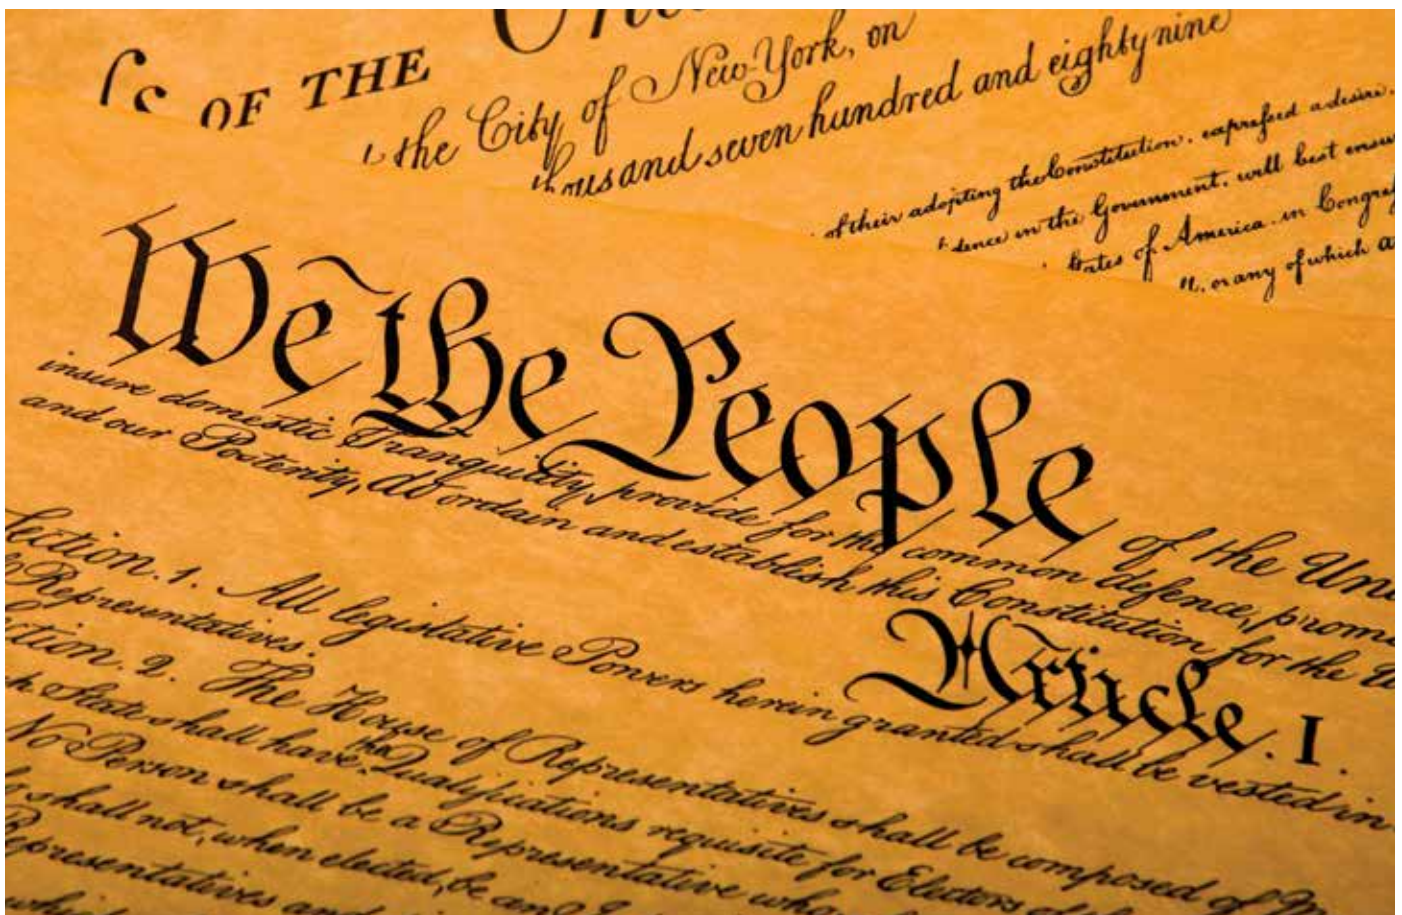 OF THE
the City of New-York, on
thousand seven hundred and eighty nine
of their adopting the Constitution, expressed a desire,
dence in the Government, will best ensu
States of America in Congre
ll, or any of which a
We the People of the Uni
insure domestic Tranquility, provide for the common defence, promo
and our Posterity, do ordain and establish this Constitution for the U
Article. I.
Section. 1. All legislative Powers herein granted shall be vested in
Representatives.
ection. 2. The House of Representatives shall be composed of M
h State shall have the Qualifications requisite for Electors of
No Person shall be a Representative who
shall not, when elected, be an
epresentatives and
which